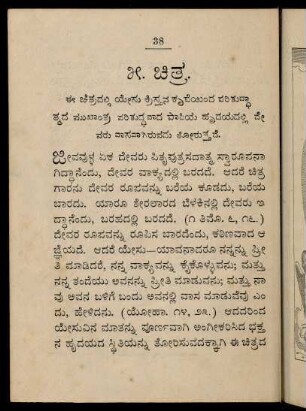 38
೫. ಚಿತ್ರ.
ಈ ಚಿತ್ರದಲ್ಲಿ ಯೇಸು ಕ್ರಿಸ್ತನ ಕೃಪೆಯಿಂದ ಪರಿಶುದ್ಧಾ
ತ್ಮದ ಮುಖಾಂತ್ರ ಪರಿಶುದ್ಧವಾದ ಪಾಪಿಯ ಹೃದಯದಲ್ಲಿ ದೇ
ವರು ವಾಸವಾಗಿರುವದು ತೋರುಸ್ತದೆ.
ಜೀವವುಳ್ಳ ಏಕ ದೇವರು ಪಿತೃಪುತ್ರಸದಾತ್ಮ ಸ್ವಾರೂಪನಾ
ಗಿದ್ದಾನೆಂದು, ದೇವರ ವಾಕ್ಯದಲ್ಲಿ ಬರದದೆ. ಆದರೆ ಚಿತ್ರ
ಗಾರನು ದೇವರ ರೂಪವನ್ನು ಬರೆಯ ಕೂಡದು, ಬರೆಯ
ಬಾರದು. ಯಾರೂ ಶೇರಲಾರದ ಬೆಳಕಿನಲ್ಲಿ ದೇವರು ಇ
ದ್ದಾನೆಂದು, ಬರಹದಲ್ಲಿ ಬರದದೆ. (೧ ತಿಮೊ. ೬, ೧೬.)
ದೇವರ ರೂಪವನ್ನು ರೂಪಿಸ ಬಾರದೆಂದು, ಕಠಿಣವಾದ ಆ
ಜ್ಞೆಯದೆ. ಆದರೆ ಯೇಸು—ಯಾವನಾದರೂ ನನ್ನನ್ನು ಪ್ರೀ
ತಿ ಮಾಡಿದರೆ, ನನ್ನ ವಾಕ್ಯವನ್ನು ಕೈಕೊಳ್ಳುವನು; ಮತ್ತು
ನನ್ನ ತಂದೆಯು ಅವನನ್ನು ಪ್ರೀತಿ ಮಾಡುವನು; ಮತ್ತು ನಾ
ವು ಅವನ ಬಳಿಗೆ ಬಂದು ಅವನಲ್ಲಿ ವಾಸ ಮಾಡುವೆವು ಎಂ
ದು, ಹೇಳಿದನು. (ಯೋಹಾ. ೧೪, ೨೩.) ಆದದರಿಂದ
ಯೇಸುವಿನ ಮಾತನ್ನು ಪೂರ್ಣವಾಗಿ ಅಂಗೀಕರಿಸಿದ ಭಕ್ತ
ನ ಹೃದಯದ ಸ್ಥಿತಿಯನ್ನು ತೋರಿಸುವದಕ್ಕಾಗಿ ಈ ಚಿತ್ರದ